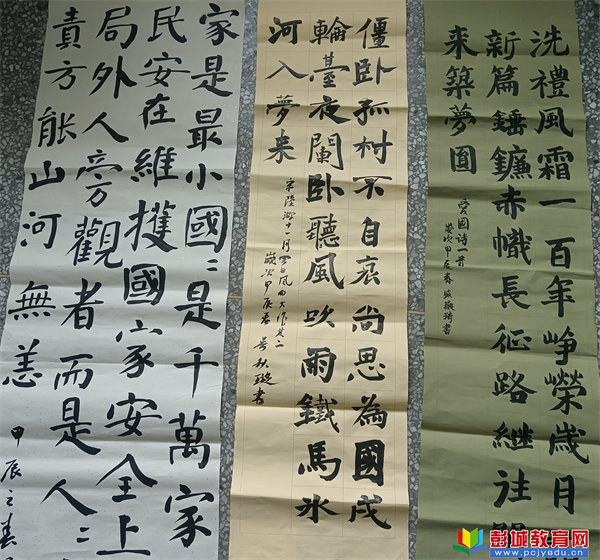 家是最小國〻是千萬家
民安在維擭國家安全上
局外人旁觀者而是人〻
責方能山河無恙
甲辰之春
僵卧孤村不自哀尚思為國戍
輪臺夜闌卧聽風吹雨鐵馬冰
河入夢来
宋陸游十一月四日風雨大作其二
歲次甲辰春 吳秋璇書
洗禮風霜一百年崢榮歲月
新篇錘鐮赤幟長征路繼往開
来築夢圓
愛國詩一首
歲次甲辰春 琦書
彭城教育网
www.pcjyedu.cn